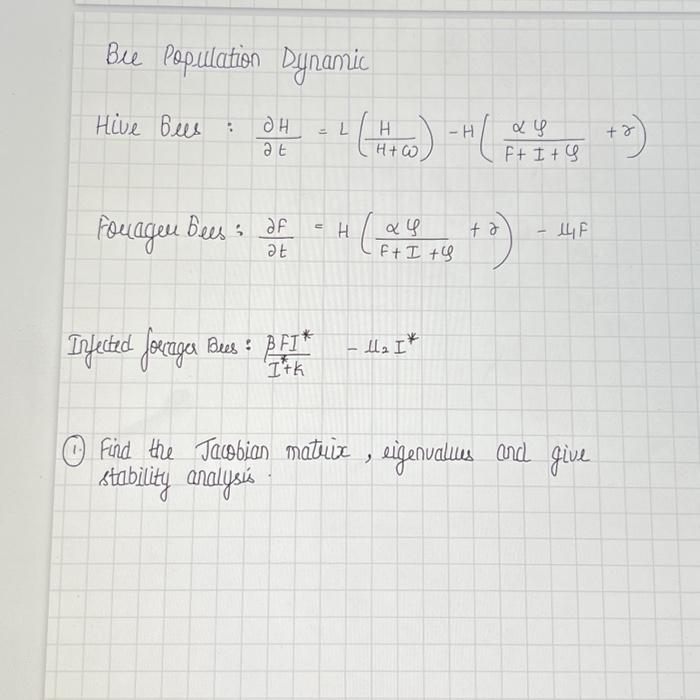 Bee Population Dynamic
Hive Bees : ∂H/∂t = L ( H/(H+ω) ) - H ( αφ/(F+I+φ) + γ )
Forager Bees : ∂F/∂t = H ( αφ/(F+I+φ) + γ ) - μ₁F
Infected forager Bees : βFI*/(I*+K) - μ₂I*
① Find the Jacobian matrix , eigenvalues and give
stability analysis .